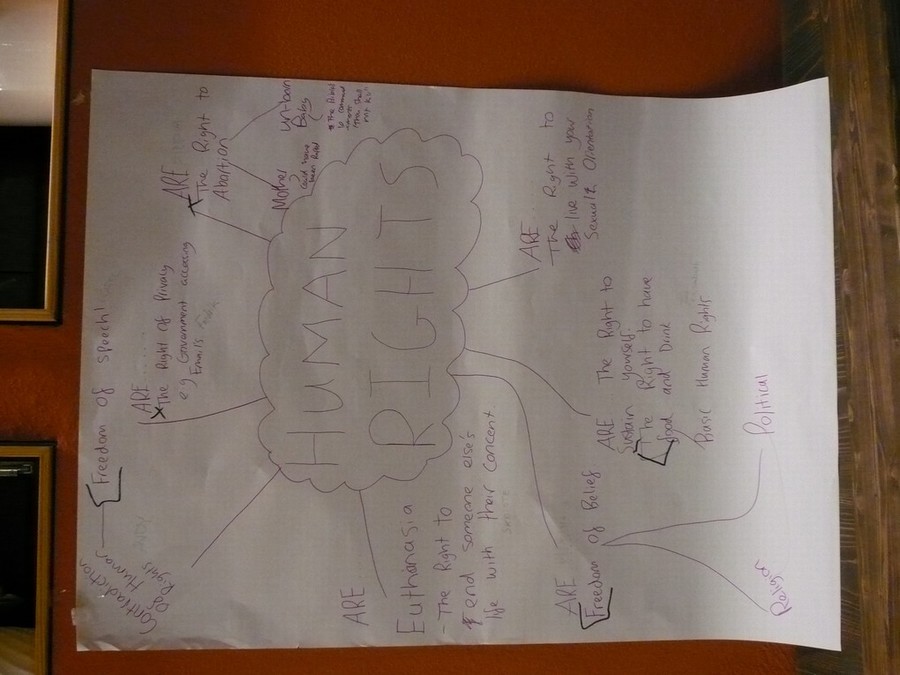 HUMAN
RIGHTS
Freedom of speech!
Contradiction
of Human
Rights
ARE
The Right of Privacy
e.g Government accessing
Emails
ARE
The Right to
Abortion
Mother
could have
been Raped
Un-born
Baby
ARE
The Right to
live with your
Sexual Orientation
ARE The Right to
Sustain yourself.
The Right to have
food and Drink
Basic Human Rights
ARE
Freedom of Belief
Political
Religion
ARE
Euthanasia
- The Right to
end someone else's
life with their concent.